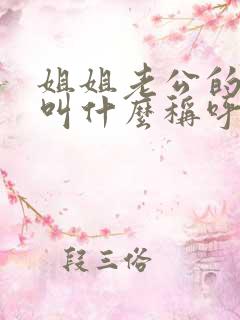 姐姐老公的
叫什麼稱呼
段三俗